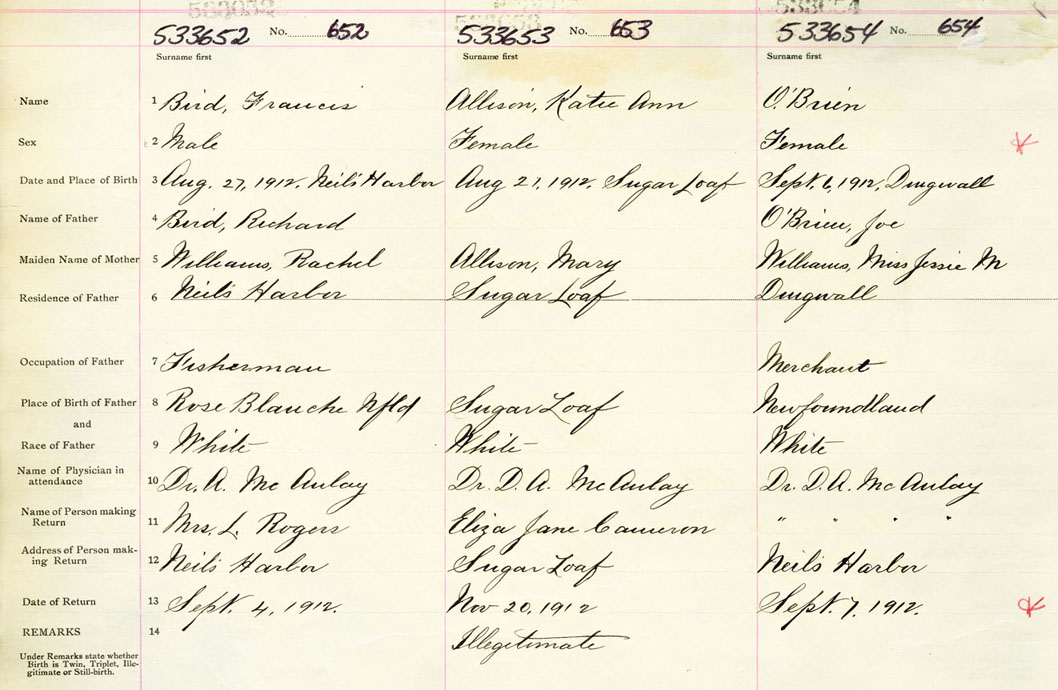 533652 No. 652 533653 No. 653 533654 No. 654
Surname first Surname first Surname first
Name 1 Bird, Francis Allison, Katie Ann O'Brien
Sex 2 Male Female Female
Date and Place of Birth 3 Aug. 27, 1912. Neil's Harbor Aug 21, 1912. Sugar Loaf Sept. 6, 1912, Dingwall
Name of Father 4 Bird, Richard O'Brien, Joe
Maiden Name of Mother 5 Williams, Rachel Allison, Mary Williams, Miss Jessie M
Residence of Father 6 Neil's Harbor Sugar Loaf Dingwall
Occupation of Father 7 Fisherman Merchant
Place of Birth of Father 8 Rose Blanche Nfld Sugar Loaf Newfoundland
and
Race of Father 9 White White White
Name of Physician in
attendance 10 Dr. A. McAulay Dr. D. A. McAulay Dr. D. A. McAulay
Name of Person making
Return 11 Mrs. L. Rogers Eliza Jane Cameron " " " "
Address of Person mak-
ing Return 12 Neil's Harbor Sugar Loaf Neil's Harbor
Date of Return 13 Sept. 4, 1912. Nov 20, 1912 Sept. 7, 1912.
REMARKS 14 Illegitimate
Under Remarks state whether
Birth is Twin, Triplet, Ille-
gitimate or Still-birth.